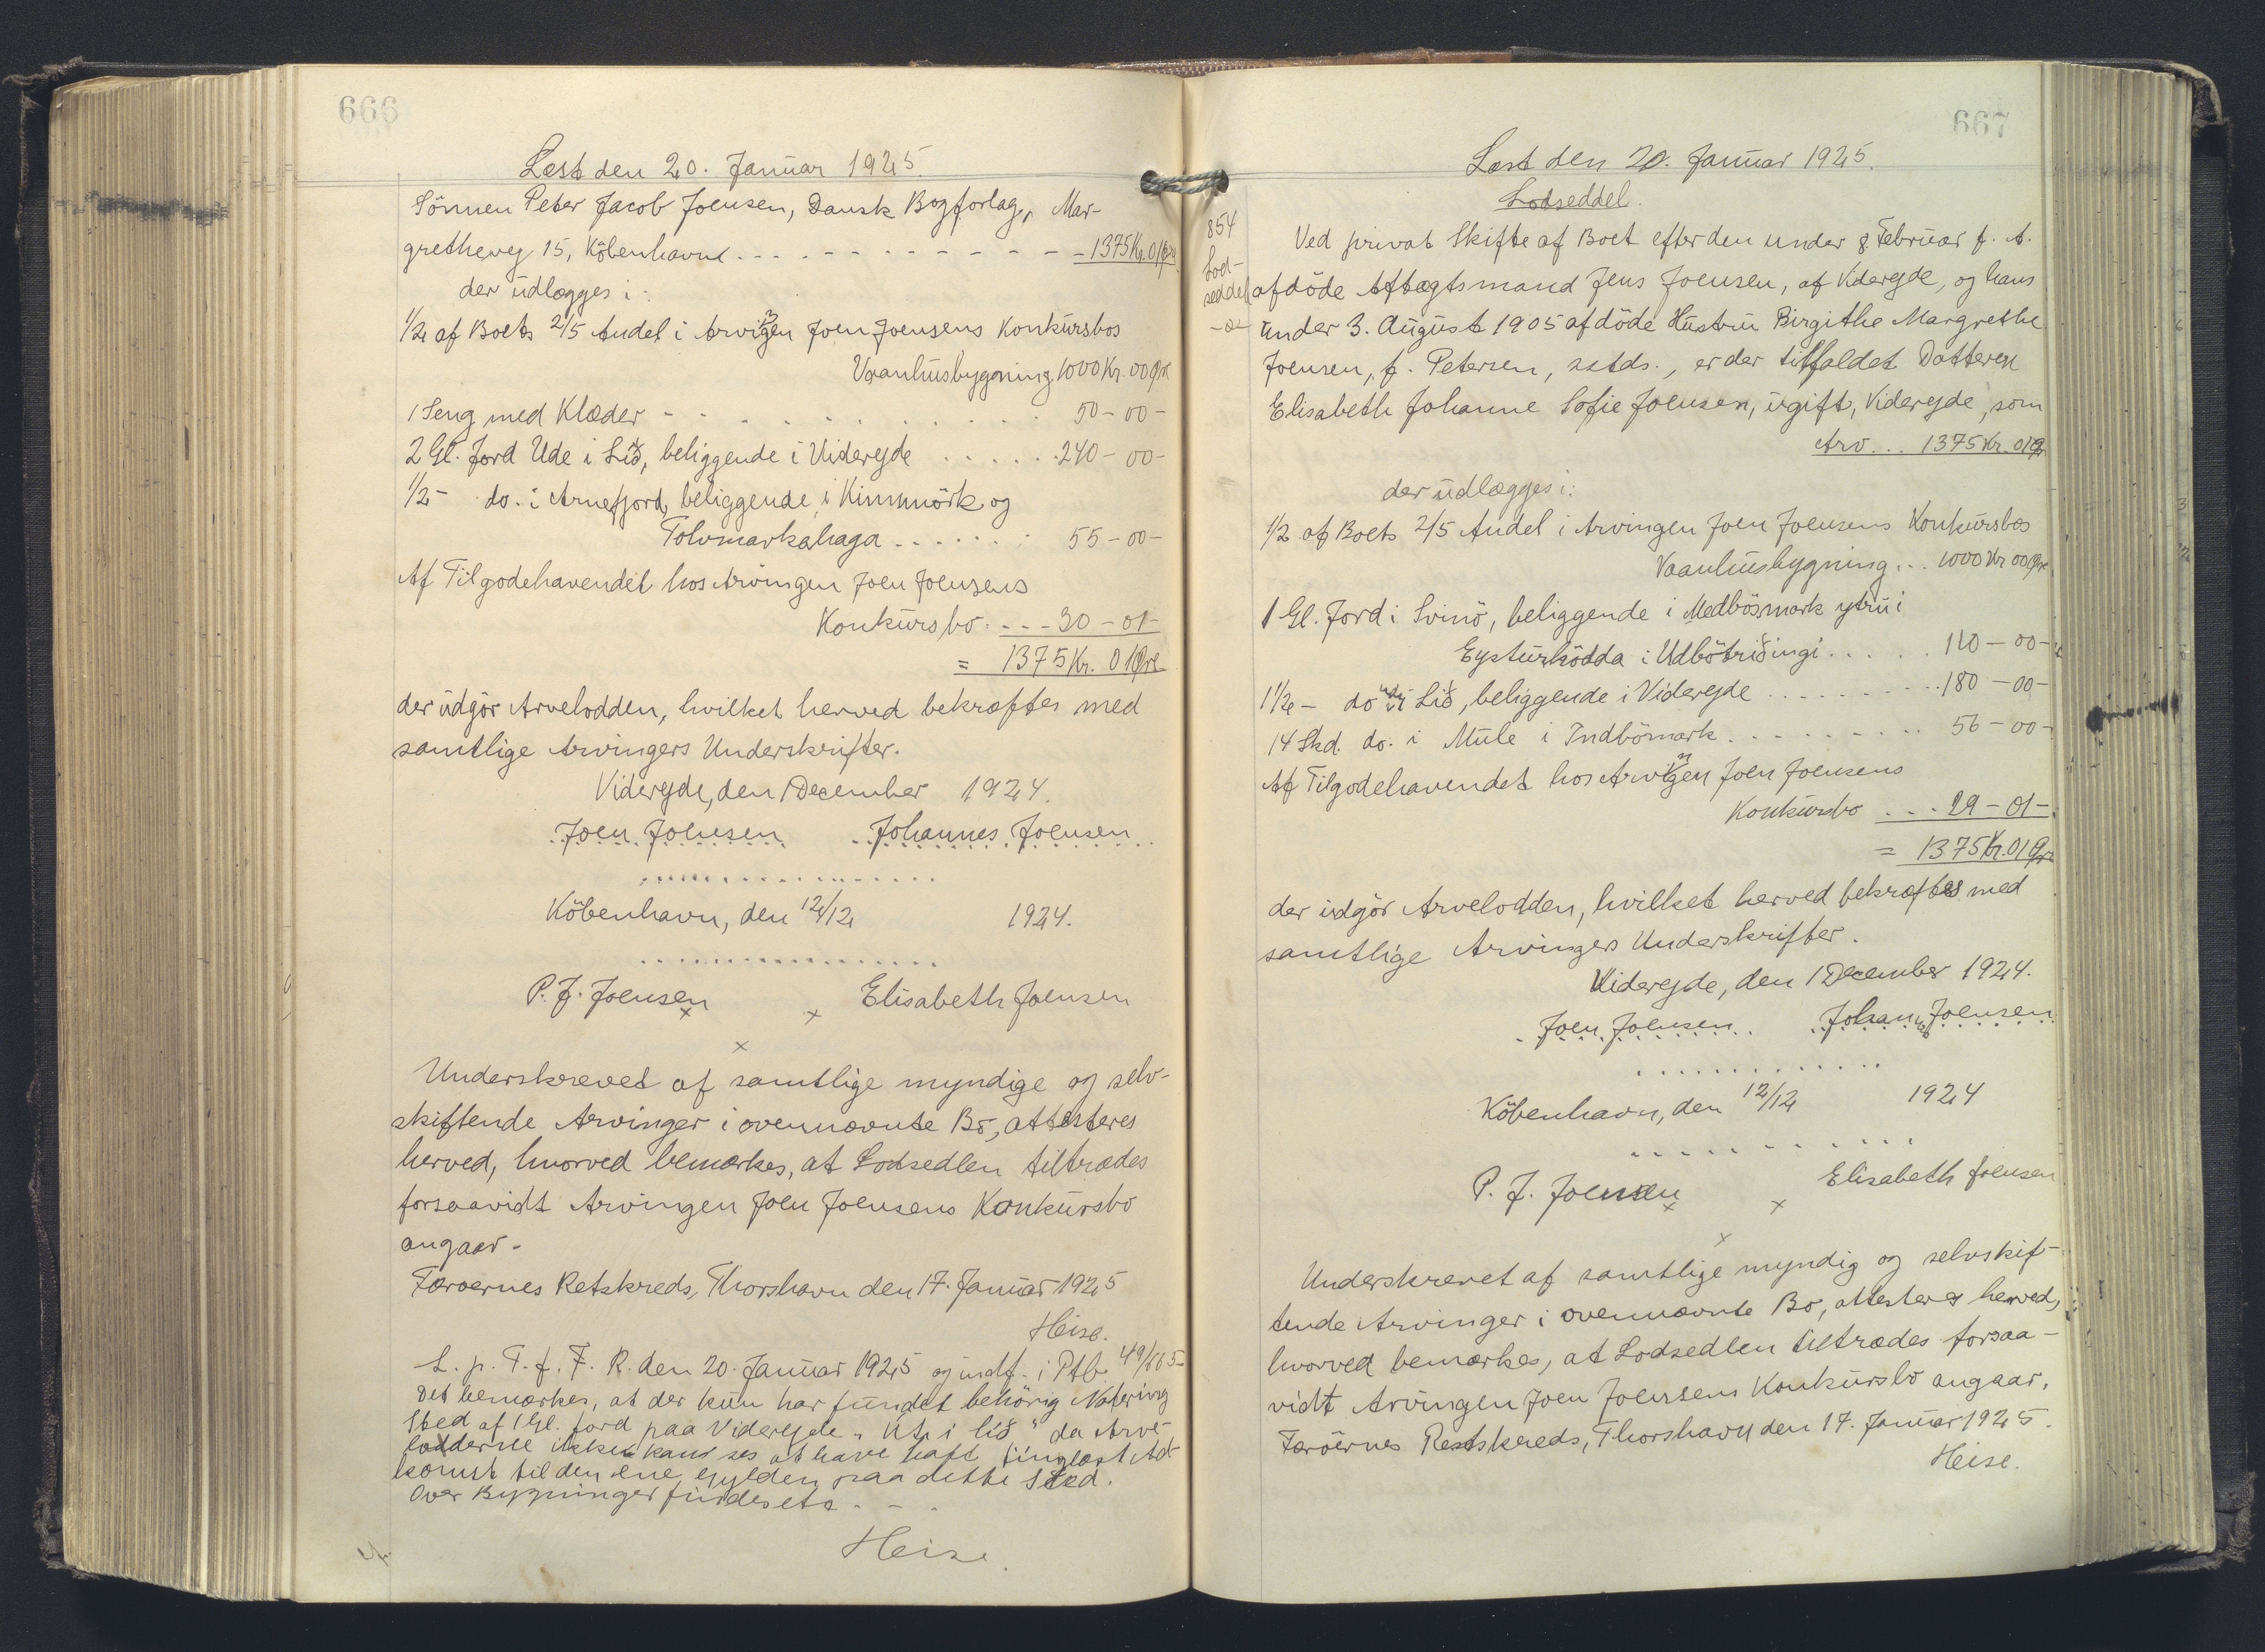 666
Læst den 20. Januar 1925.
Sönnen Peter Jacob Joensen, Dansk Bogforlag, Mar-
grethevej 15, Köbenhavn - - - - - - - - - - - 1375 Kr. 01 Øre
der udlægges i:
1/2 af Boets 2/5 Andel i Arvingen Joen Joensens Konkursbos
Vaanhusbygning 1000 Kr. 00 Øre
1 Seng med Klæder - - . . . . . . . . . . 50 - 00 -
2 Gl. Jord Ude i Lið, beliggende i Videreyde . . . . . . 240 - 00 -
1/2 - do. i Arnefjord, beliggende i Kinnmörk og
Tolvmarkahaga . . . . . . . 55 - 00 -
Af Tilgodehavendet hos Arvingen Joen Joensens
Konkursbo. - - - 30 - 01 -
= 1375 Kr. 01 Øre
der udgör Arvelodden, hvilket herved bekræftes med
samtlige Arvingers Underskrifter.
Videreyde, den 1 December 1924.
Joen Joensen Johannes Joensen
. . . . . . . . . . . . . . . . . .
Köbenhavn, den 12/12 1924.
. . . . . . . . . . . . . . . . . .
P. J. Joensen Elisabeth Joensen
x x
x
Underskrevet af samtlige myndige og selv-
skiftende Arvinger i ovennævnte Bo, attesteres
herved, hvorved bemærkes, at Lodsedlen tiltrædes
forsaavidt Arvingen Joen Joensens Konkursbo
angaar -
Færøernes Retskreds, Thorshavn den 17. Januar 1925
Heise.
L. p. T. f. F. R. den 20. Januar 1925 og indf. i Ptb. 49/665
Det bemærkes, at der kun har fundet behörig Notering
Sted af 1 Gl. Jord paa Videreyde "Úti i lið" da Arve-
ladderne ikke kan ses at have haft tinglæst Ad-
komst til den ene Gylden paa dette Sted.
Over Bygninger findes etc. - -
Heise.
667
Læst den 20. Januar 1925.
Lodseddel.
854
Lod-
seddel
Ved privat Skifte af Boet efter den under 8. Februar f. A.
afdöde Aftægtsmand Jens Joensen, af Videreyde, og hans
under 3. August 1905 afdöde Hustru Birgithe Margrethe
Joensen, f. Petersen, sstds., er der tilfaldet Datteren
Elisabeth Johanne Sofie Joensen, ugift, Videreyde, som
Arv . . . 1375 Kr. 01 Ø
der udlægges i:
1/2 af Boets 2/5 Andel i Arvingen Joen Joensens Konkursbos
Vaanhusbygning . . . 1000 Kr 00 Øre
1 Gl. Jord i Svinö, beliggende i Medbösmark ytru i
Eysturhödda i Udbötriðingi . . . . . 110 - 00 -
1 1/2 - do ude i Lið, beliggende i Videreyde . . . . . . . . . . 180 - 00 -
14 Skd. do. i Mule i Indbömark . . . . . . . . . 56 - 00 -
Af Tilgodehavendet hos Arvingen Joen Joensens
Konkursbo . . . . 29 - 01 -
= 1375 Kr. 01 Øre
der udgör Arvelodden, hvilket herved bekræftes med
samtlige Arvingers Underskrifter.
Videreyde, den 1 December 1924.
Joen Joensen Johans Joensen
. . . . . . . . . . . . .
Köbenhavn, den 12/12 1924
. . . . . . . . . . . . .
P. J. Joensen Elisabeth Joensen
x x
x
Underskrevet af samtlige myndig og selvskif-
tende Arvinger i ovennævnte Bo, attesteres herved,
hvorved bemærkes, at Lodsedlen tiltrædes forsaa-
vidt Arvingen Joen Joensens Konkursbo angaar.
Færöernes Retskreds, Thorshavn den 17. Januar 1925.
Heise.